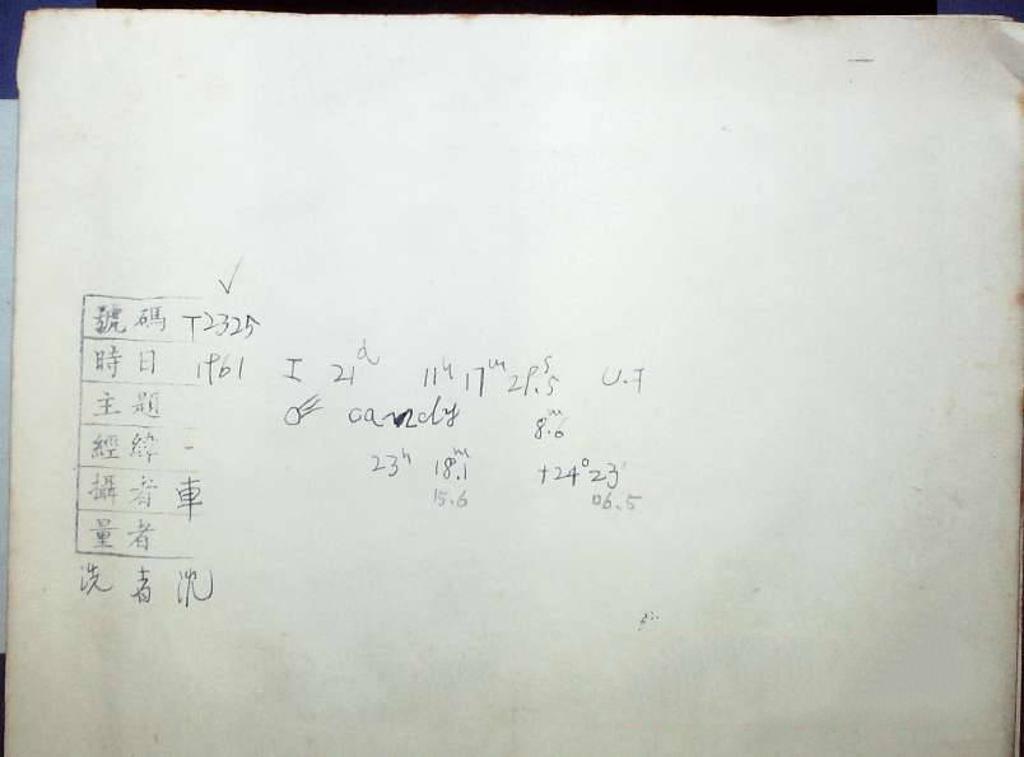 號碼 T2325
時日 1961 I 21d 11h 17m 29.5s U.T
主題 candy 8.6m
經緯 - 23h 18.1m +24°23'
15.6 06.5
攝者 車
量者
洗者 沈